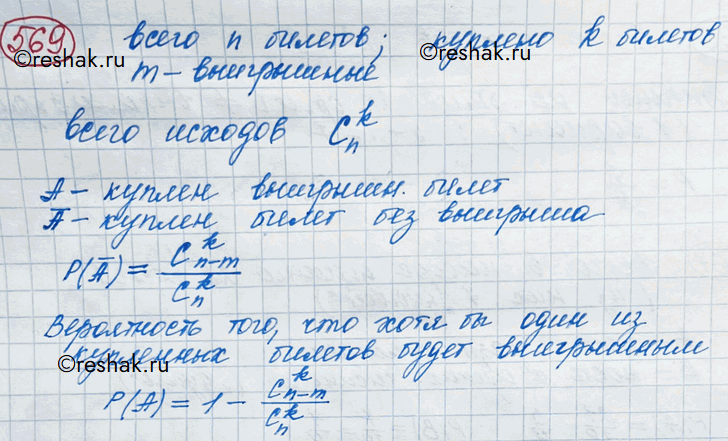 569 всего n билетов; куплено k билетов
©reshak.ru ©reshak.ru
m – выигрышные
всего исходов C_n^k
A – куплен выигрышн. билет
Ā – куплен билет без выигрыша
P(Ā) = C_{n-m}^k / C_n^k
Вероятность того, что хотя бы один из
купленных билетов будет выигрышным
©reshak.ru
P(A) = 1 – C_{n-m}^k / C_n^k